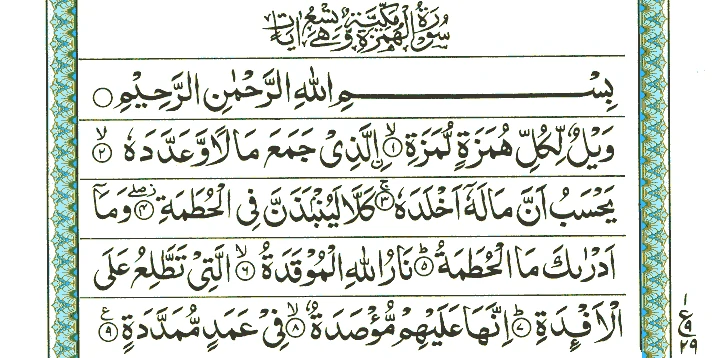 سُوْرَةُ الْهُمَزَةِ مَكِّيَّةٌ وَّهِيَ تِسْعُ اٰيَاتٍ
بِسْمِ اللهِ الرَّحْمٰنِ الرَّحِيْمِ ○
وَيْلٌ لِّكُلِّ هُمَزَةٍ لُّمَزَةِ ۙ﴿۱﴾ اِۨلَّذِىْ جَمَعَ مَالًا وَّعَدَّدَهٗ ۙ﴿۲﴾
يَحْسَبُ اَنَّ مَالَهٗۤ اَخْلَدَهٗ ۚ﴿۳﴾ كَلَّا لَيُنْۢبَذَنَّ فِى الْحُطَمَةِ ۖ﴿۴﴾ وَمَاۤ
اَدْرٰىكَ مَا الْحُطَمَةُ ؕ﴿۵﴾ نَارُ اللهِ الْمُوْقَدَةُ ۙ﴿۶﴾ الَّتِىْ تَطَّلِعُ عَلَى
الْاَفْـِٕدَةِ ؕ﴿۷﴾ اِنَّهَا عَلَيْهِمْ مُّؤْصَدَةٌ ۙ﴿۸﴾ فِىْ عَمَدٍ مُّمَدَّدَةٍ ﴿۹﴾ ع
۱
ع
۹
۲۹